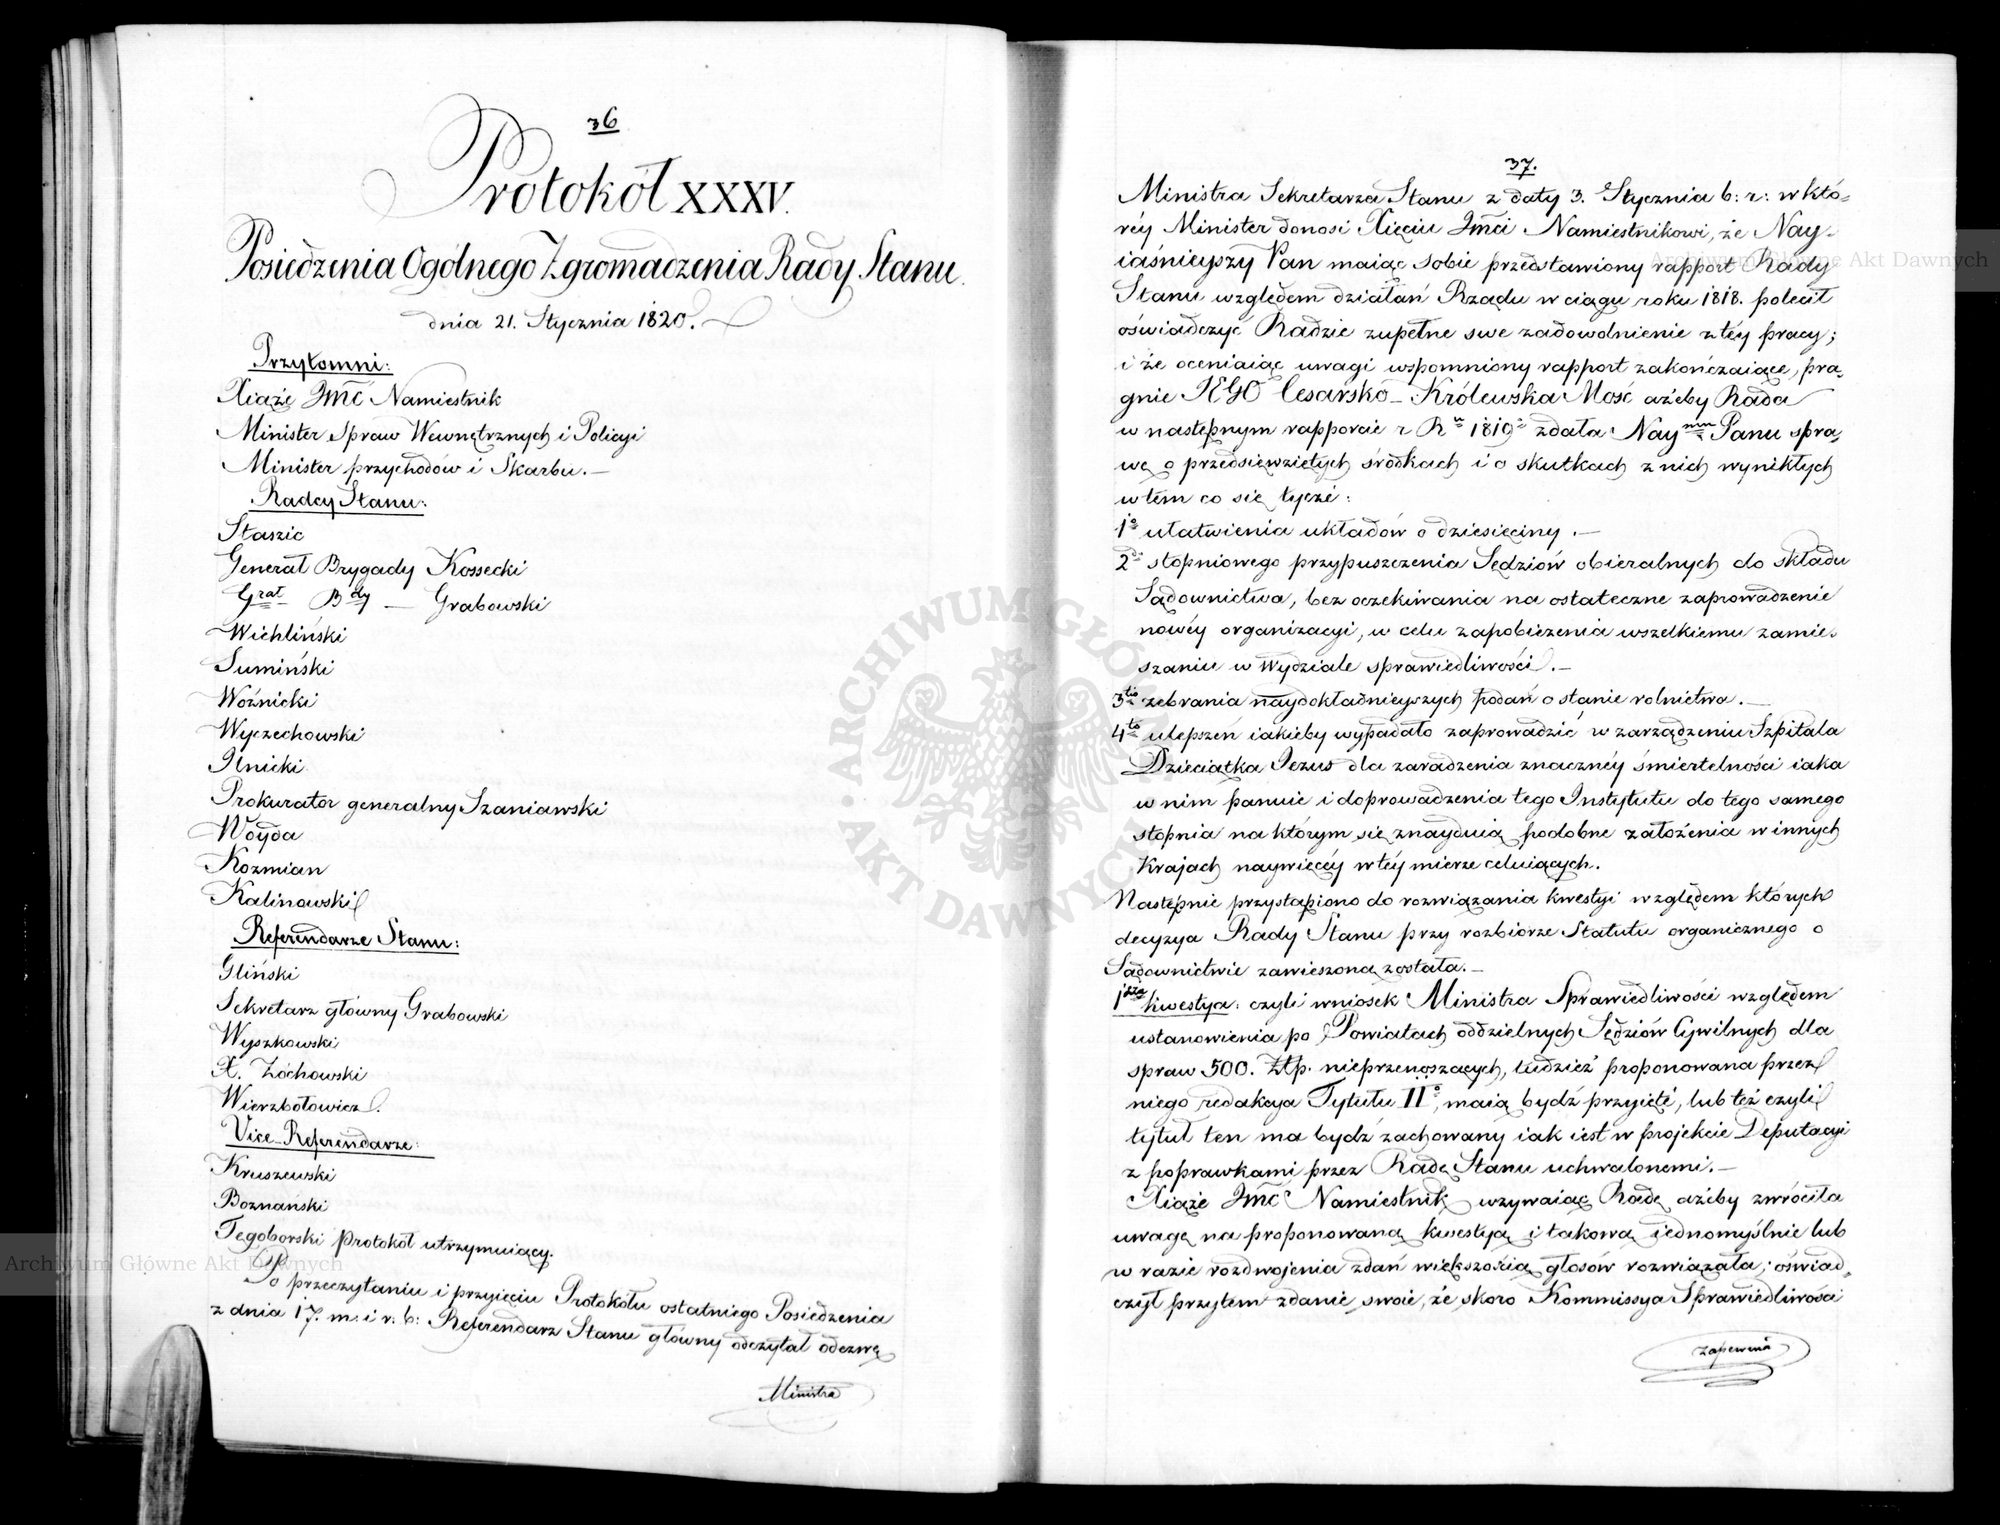 36
Protokół XXXV.
Posiedzenia Ogólnego Zgromadzenia Rady Stanu.
dnia 21. Stycznia 1820.
Przytomni:
Xiąże Jmć Namiestnik
Minister Spraw Wewnętrznych i Policyi
Minister przychodów i Skarbu.—
Radcy Stanu:
Staszic
Generał Brygady Kossecki
Grał Bdy — Grabowski
Wichliński
Sumiński
Woźnicki
Wyczechowski
Ilnicki
Prokurator generalny Szaniawski
Woyda
Kozmian
Kalinowski
Referendarze Stanu:
Gliński
Sekretarz główny Grabowski
Wyszkowski
X. Żóchowski
Wierzbołowicz.
Vice-Referendarze:
Kruszewski
Boznański
Tęgoborski protokół utrzymuiący.
Po przeczytaniu i przyięciu Protokółu ostatniego Posiedzenia
z dnia 17. m: i r: b: Referendarz Stanu główny odczytał odezwę
Ministra
37.
Ministra Sekretarza Stanu z daty 3. Stycznia b: r: w któ-
réy Minister donosi Xięciu Jmći Namiestnikowi, że Nay-
iaśnieyszy Pan maiąc sobie przedstawiony rapport Rady
Stanu względem działań Rządu w ciągu roku 1818. polecił
oświadczyć Radzie zupełne swe zadowolnienie z téy pracy;
i że oceniaiąc uwagi wspomniony rapport zakończaiące, pra-
gnie JEGO Cesarsko-Królewska Mość ażeby Rada
w następnym rapporcie z Ru 1819o zdała Naynm Panu spra-
wę o przedsięwziętych środkach i o skutkach z nich wynikłych
w tem co się tycze:
1o ułatwienia układów o dziesięciny.—
2do stopniowego przypuszczenia Sędziów obieralnych do składu
Sądownictwa, bez oczekiwania na ostateczne zaprowadzenie
nowéy organizacyi, w celu zapobieżenia wszelkiemu zamie-
szaniu w Wydziale sprawiedliwości.—
3tio zebrania naydokładnieyszych podań o stanie rolnictwa.—
4to ulepszeń iakieby wypadało zaprowadzić w zarządzeniu Szpitala
Dzieciątka Jezus dla zaradzenia znacznéy śmiertelności iaka
w nim panuie i doprowadzenia tego Instytutu do tego samego
stopnia na którym się znayduią podobne założenia w innych
Krajach naywięcéy w téy mierze celuiących.
Następnie przystąpiono do rozwiązania kwestyi względem których
decyzya Rady Stanu przy rozbiorze Statutu organicznego o
Sądownictwie zawieszoną została.—
1sza kwestya: czyli wniosek Ministra Sprawiedliwości względem
ustanowienia po Powiatach oddzielnych Sędziów Cywilnych dla
spraw 500. Złp. nieprzenoszących, tudzież proponowana przez
niego redakcya Tytułu IIo, maią bydź przyięte, lub też czyli
tytuł ten ma bydź zachowany iak iest w projekcie Deputacyi
z poprawkami przez Radę Stanu uchwalonemi.—
Xiąże Jmć Namiestnik wzywaiąc Radę ażeby zwróciła
uwagę na proponowaną kwestyą i takową iednomyślnie lub
w razie rozdwojenia zdań większością głosów rozwiązała; oświad-
czył przytem zdanie swoie, że skoro Kommissya Sprawiedliwości
zapewnia
ARCHIWUM GŁÓWNE AKT DAWNYCH
Archiwum Główne Akt Dawnych
Archiwum Główne Akt Dawnych